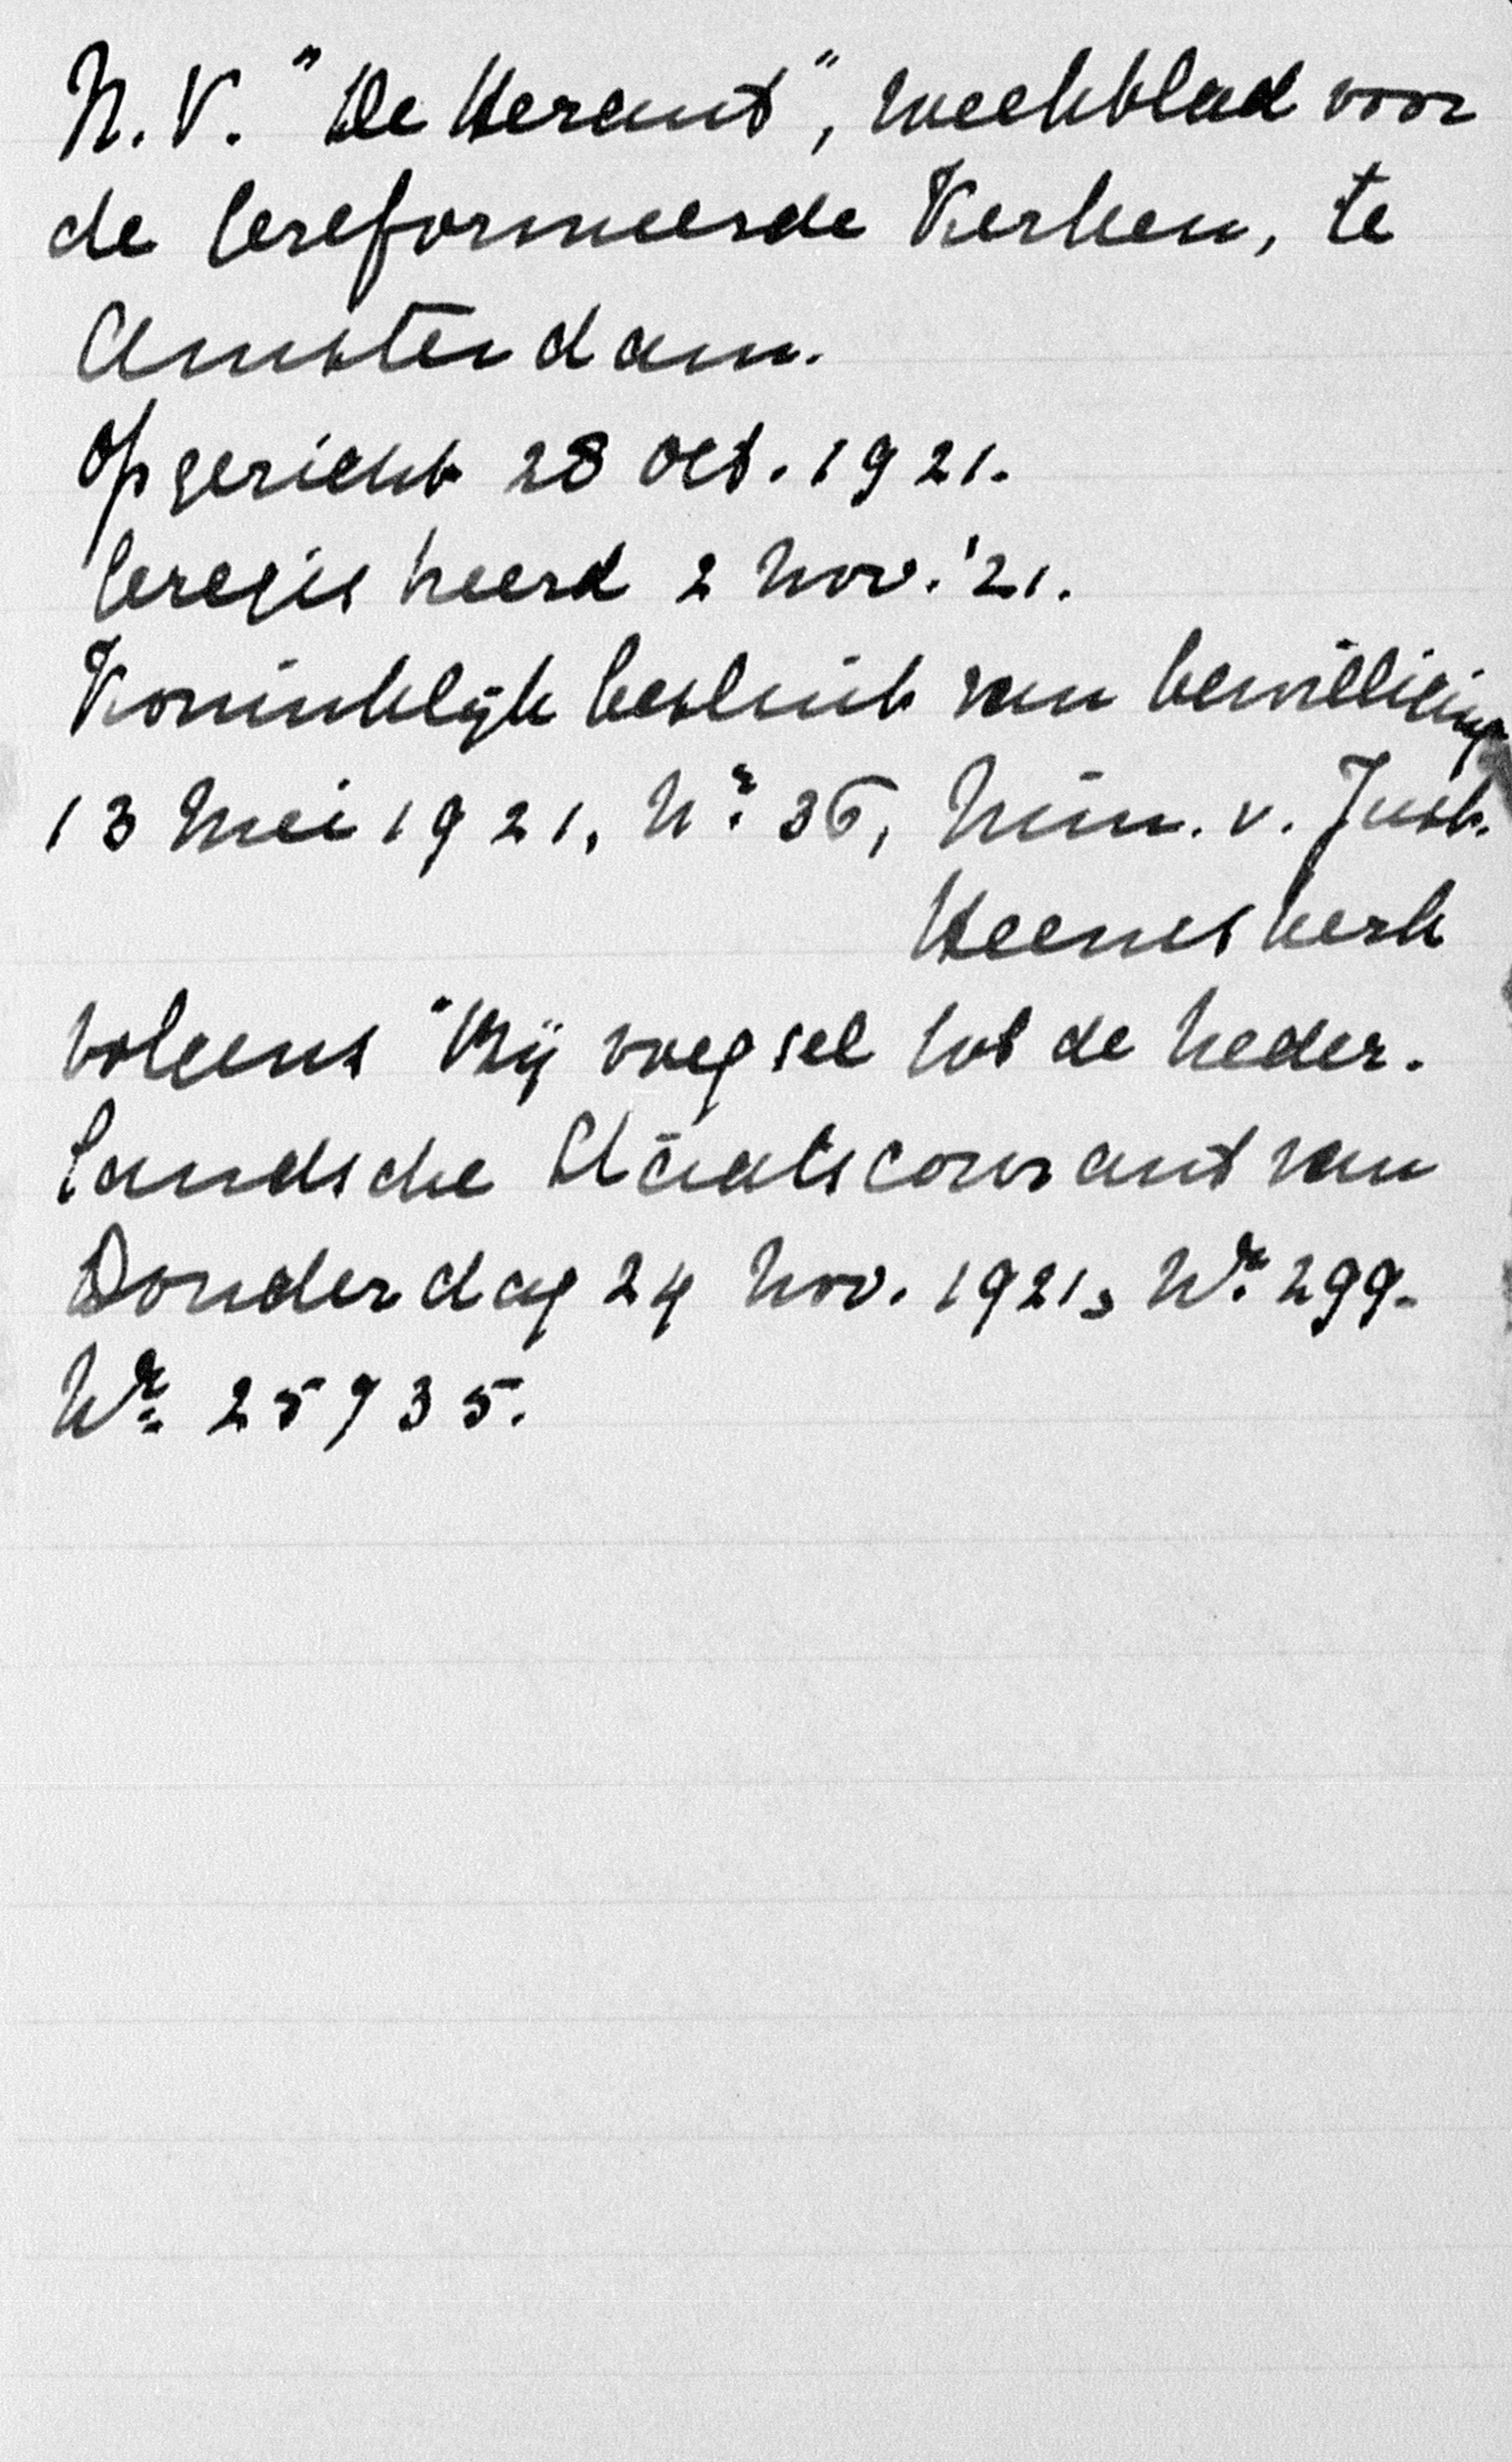 N.V. "De Heraut", weekblad voor
de Gereformeerde Kerken, te
Amsterdam.
Opgericht 28 Oct. 1921.
Geregistreerd 2 Nov. '21.
Koninklijk besluit van bewilliging
13 Mei 1921, Nr. 36, Min. v. Just.
Heemskerk
volgens "Bijvoegsel tot de Neder-
landsche Staatscourant van
Donderdag 24 Nov. 1921, Nr. 299.
Nr. 25735.